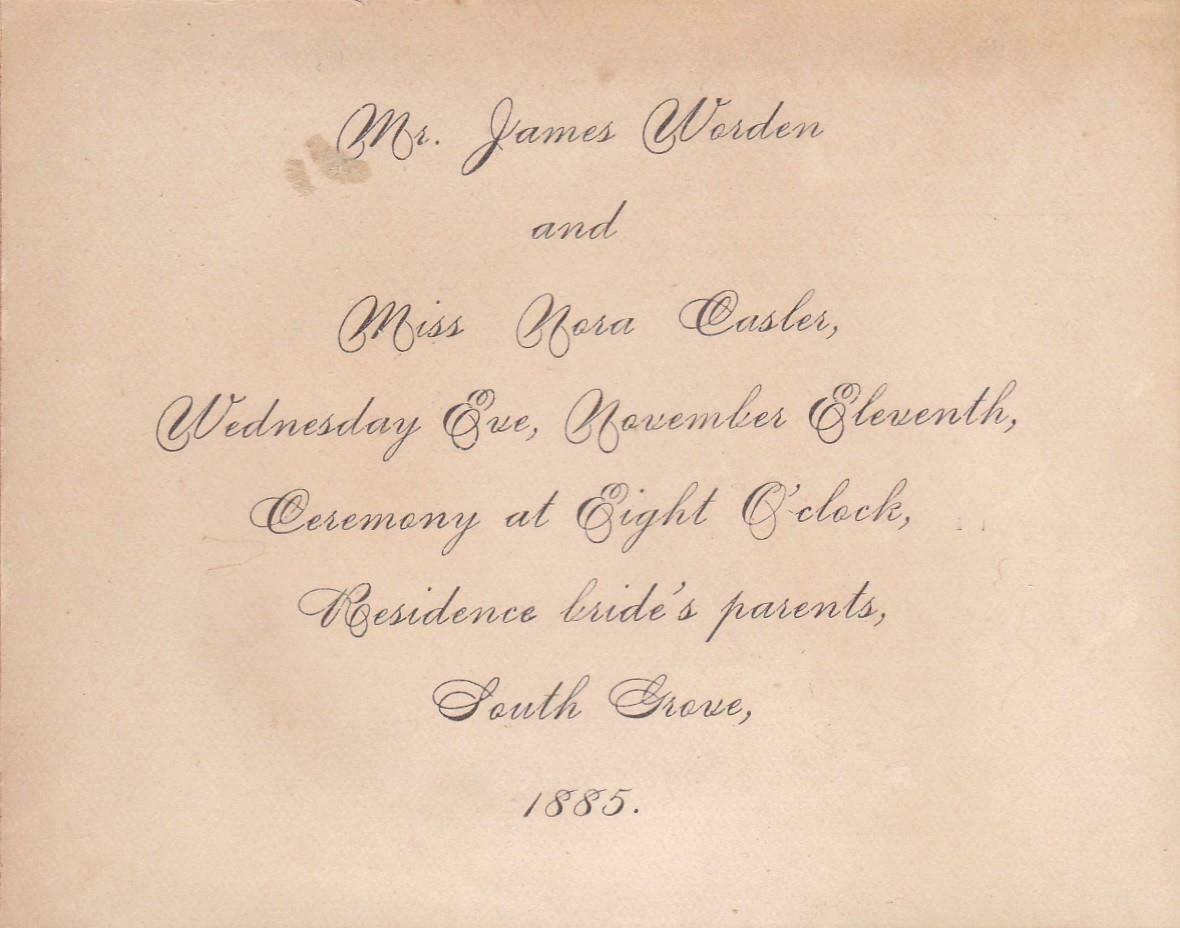 Mr. James Worden
and
Miss Nora Casler,
Wednesday Eve, November Eleventh,
Ceremony at Eight O'clock,
Residence bride's parents,
South Grove,
1885.